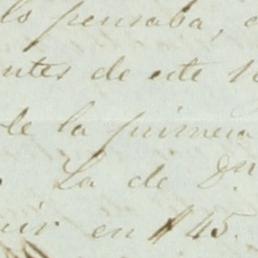 lo pensaba,
ntes de este
de la primera
La de Dn
uir en $45.